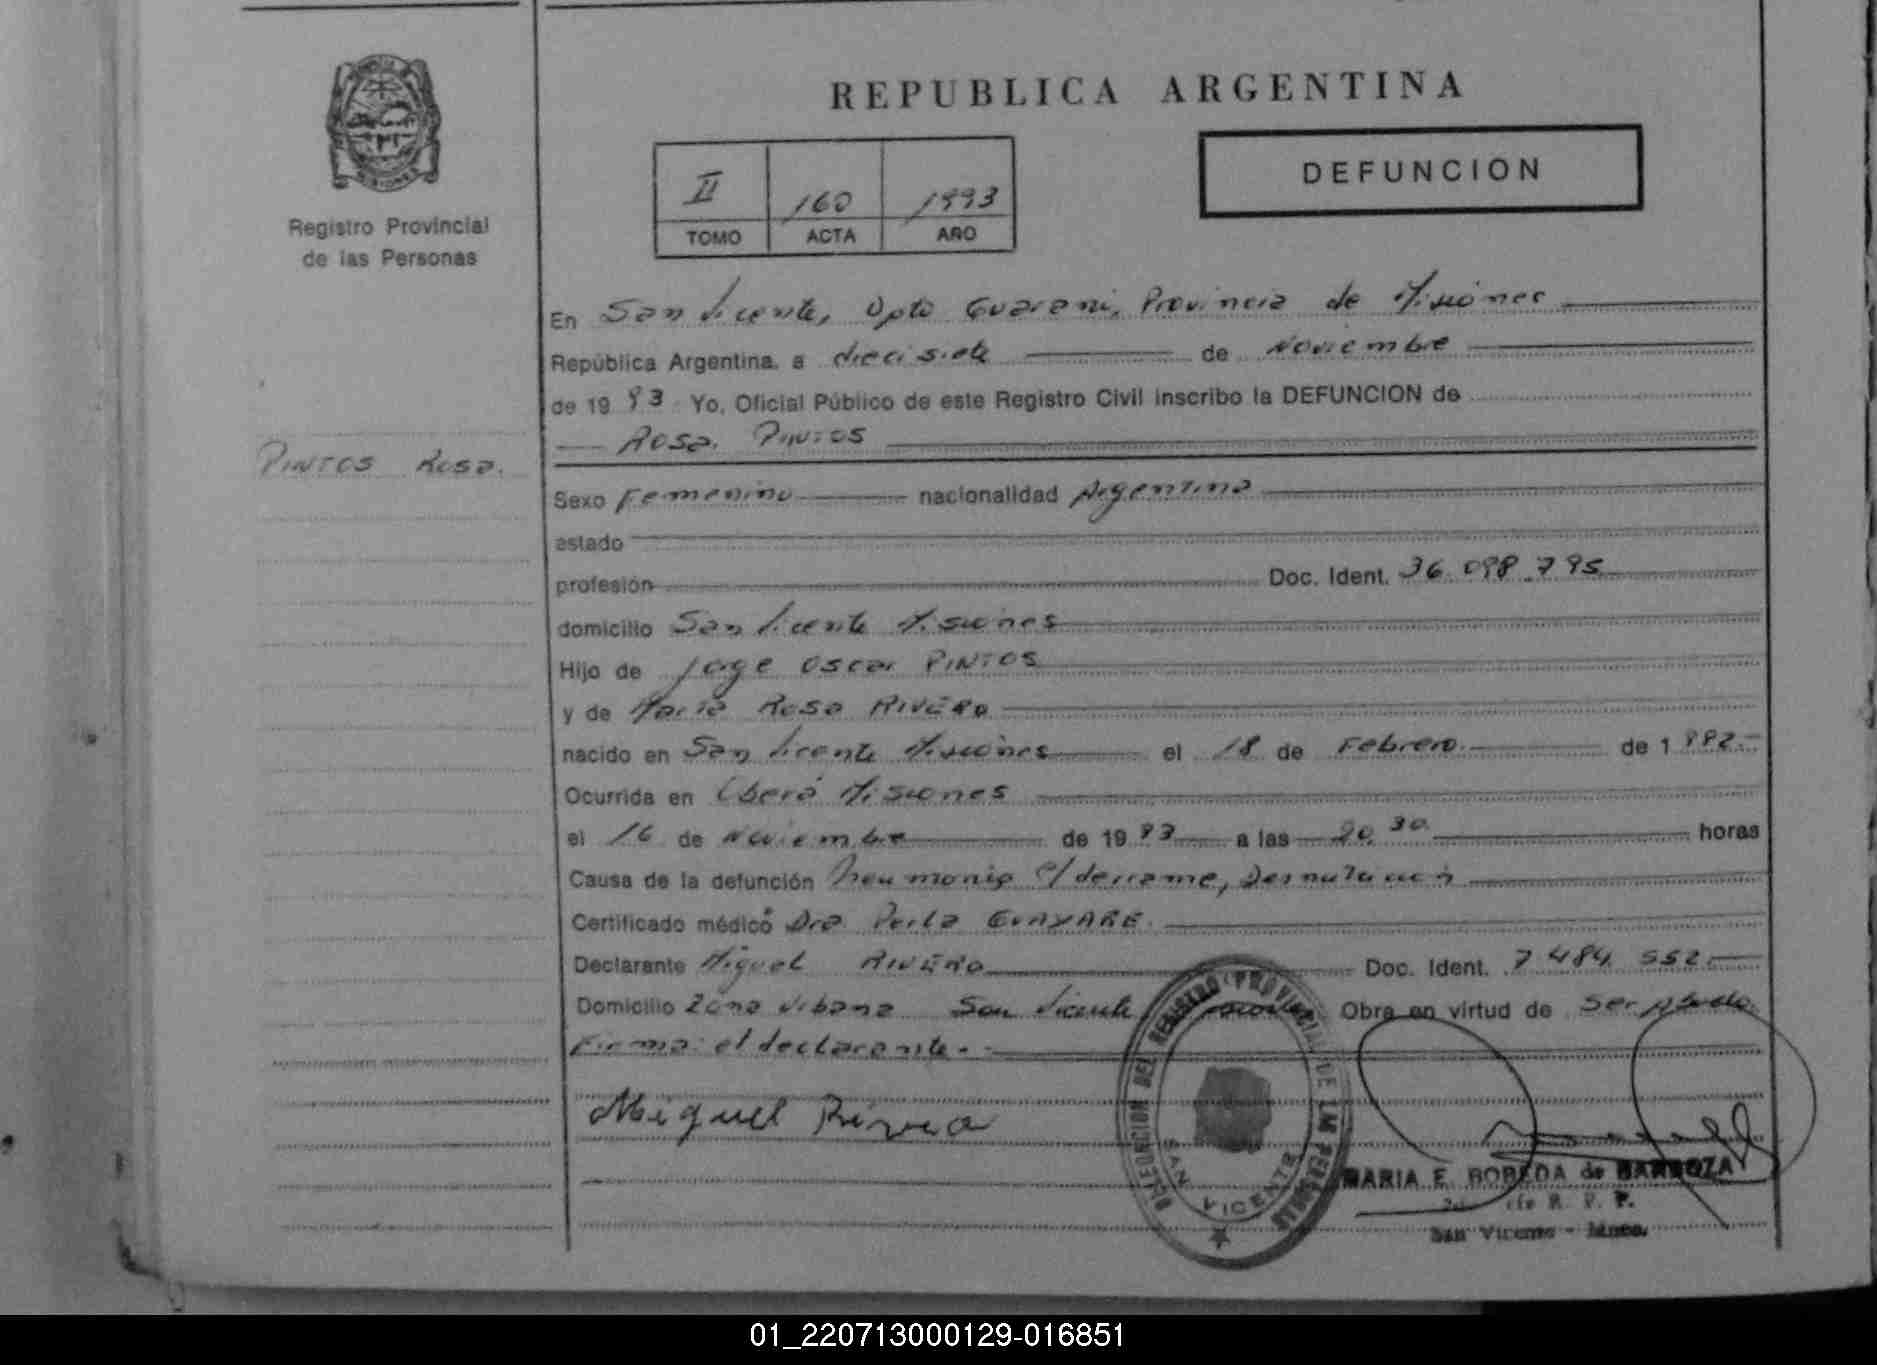 REPUBLICA ARGENTINA
DEFUNCION
II 160 1993
TOMO ACTA AÑO
MISIONES
Registro Provincial
de las Personas
En San Vicente, Dpto Guarani, Provincia de Misiones
República Argentina, a diecisiete de Noviembre
de 1993 Yo, Oficial Público de este Registro Civil inscribo la DEFUNCION de
Rosa PINTOS
PINTOS Rosa.
Sexo Femenino nacionalidad Argentina
estado
profesión Doc. Ident. 36.098.795
domicilio San Vicente Misiones
Hijo de Jorge Oscar PINTOS
y de Maria Rosa RIVERO
nacido en San Vicente Misiones el 18 de Febrero de 1992
Ocurrida en Oberá Misiones
el 16 de Noviembre de 1993 a las 20,30 horas
Causa de la defunción Neumonia c/ derrame, Desnutrición
Certificado médico Dra. Perla GUAYARE.
Declarante Miguel RIVERO Doc. Ident. 7.484.552
Domicilio Zona Urbana San Vicente Misiones Obra en virtud de ser
Firma: el declarante.
Miguel Rivero
DELEGACION DEL REGISTRO PROVINCIAL DE LAS PERSONAS
SAN VICENTE
MARIA E. ROBEDA de BARBOZA
R. P. P.
San Vicente - Mnes.
01_220713000129-016851